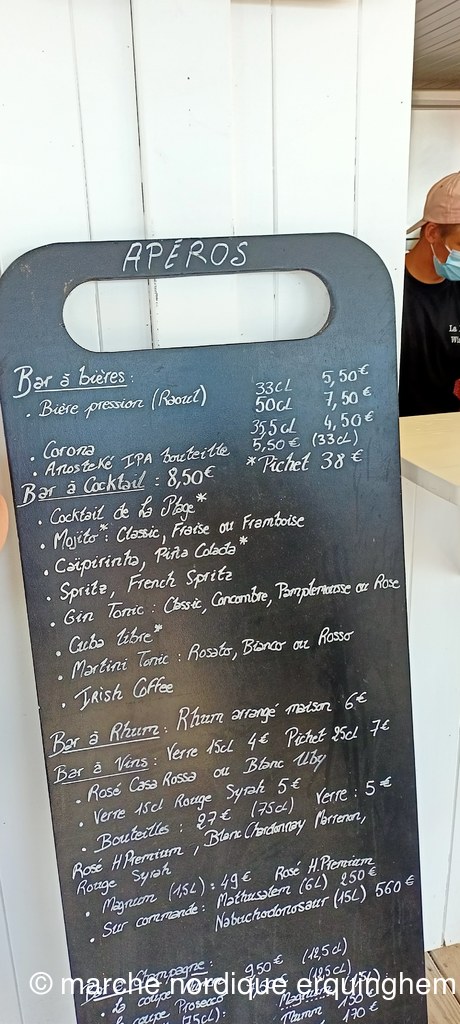 APÉROS
Bar à bières :
. Bière pression (Raoul) 33cl 5,50€
50cl 7,50€
. Corona 35,5cl 4,50€
. Anosteké IPA bouteille 5,50€ (33cl)
Bar à Cocktail : 8,50€ *Pichet 38€
. Cocktail de la Plage*
. Mojito* : Classic, Fraise ou Framboise
. Caïpirinha, Piña Colada*
. Spritz, French Spritz
. Gin Tonic : Classic, Concombre, Pamplemousse ou Rose
. Cuba libre*
. Martini Tonic : Rosato, Bianco ou Rosso
. Irish Coffee
Bar à Rhum : Rhum arrangé maison 6€
Bar à Vins : Verre 15cl 4€ Pichet 25cl 7€
. Rosé Casa Rossa ou Blanc Uby
. Verre 15cl Rouge Syrah 5€
. Bouteilles : 27€ (75cl) Verre : 5€
Rosé H.Premium, Blanc Chardonnay Marrenon,
Rouge Syrah
. Magnum (1,5L) : 49€ Rosé H.Premium
. Sur commande : Mathusalem (6L) 250€
Nabuchodonosaur (15L) 560€
Champagne :
la coupe 9,50€ (12,5cl)
la coupe Prosecco (12,5cl)
(75cl) :
Mumm 170€
La
Wi
© marche nordique erquinghem